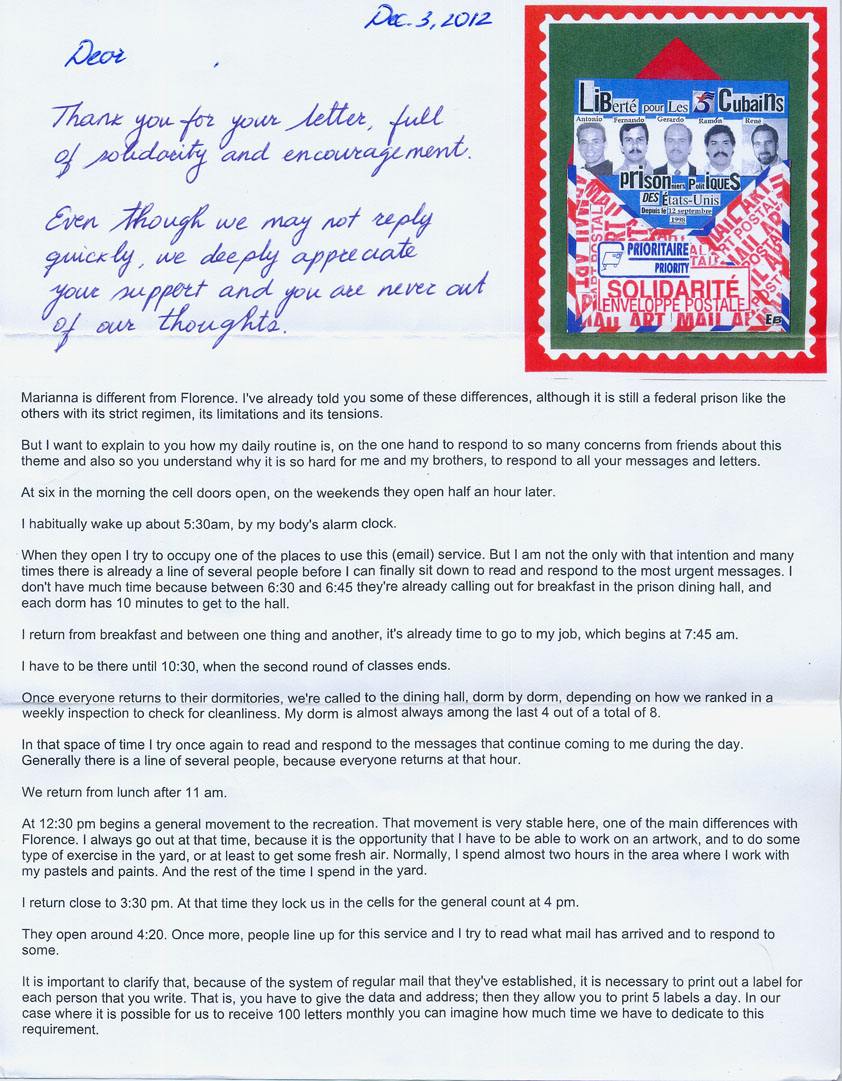 Dec. 3, 2012
Dear ,
Thank you for your letter, full
of solidarity and encouragement.
Even though we may not reply
quickly, we deeply appreciate
your support and you are never out
of our thoughts.
LiBerté pour Les 5 Cubains
Antonio Fernando Gerardo Ramón René
prisonniers PolitiQUES
DES États-Unis
Depuis le 12 septembre
1998
PRIORITAIRE
PRIORITY
SOLIDARITÉ
ENVELOPPE POSTALE
MAIL ART MAIL ART
EB
Marianna is different from Florence. I've already told you some of these differences, although it is still a federal prison like the
others with its strict regimen, its limitations and its tensions.
But I want to explain to you how my daily routine is, on the one hand to respond to so many concerns from friends about this
theme and also so you understand why it is so hard for me and my brothers, to respond to all your messages and letters.
At six in the morning the cell doors open, on the weekends they open half an hour later.
I habitually wake up about 5:30am, by my body's alarm clock.
When they open I try to occupy one of the places to use this (email) service. But I am not the only with that intention and many
times there is already a line of several people before I can finally sit down to read and respond to the most urgent messages. I
don't have much time because between 6:30 and 6:45 they're already calling out for breakfast in the prison dining hall, and
each dorm has 10 minutes to get to the hall.
I return from breakfast and between one thing and another, it's already time to go to my job, which begins at 7:45 am.
I have to be there until 10:30, when the second round of classes ends.
Once everyone returns to their dormitories, we're called to the dining hall, dorm by dorm, depending on how we ranked in a
weekly inspection to check for cleanliness. My dorm is almost always among the last 4 out of a total of 8.
In that space of time I try once again to read and respond to the messages that continue coming to me during the day.
Generally there is a line of several people, because everyone returns at that hour.
We return from lunch after 11 am.
At 12:30 pm begins a general movement to the recreation. That movement is very stable here, one of the main differences with
Florence. I always go out at that time, because it is the opportunity that I have to be able to work on an artwork, and to do some
type of exercise in the yard, or at least to get some fresh air. Normally, I spend almost two hours in the area where I work with
my pastels and paints. And the rest of the time I spend in the yard.
I return close to 3:30 pm. At that time they lock us in the cells for the general count at 4 pm.
They open around 4:20. Once more, people line up for this service and I try to read what mail has arrived and to respond to
some.
It is important to clarify that, because of the system of regular mail that they've established, it is necessary to print out a label for
each person that you write. That is, you have to give the data and address; then they allow you to print 5 labels a day. In our
case where it is possible for us to receive 100 letters monthly you can imagine how much time we have to dedicate to this
requirement.